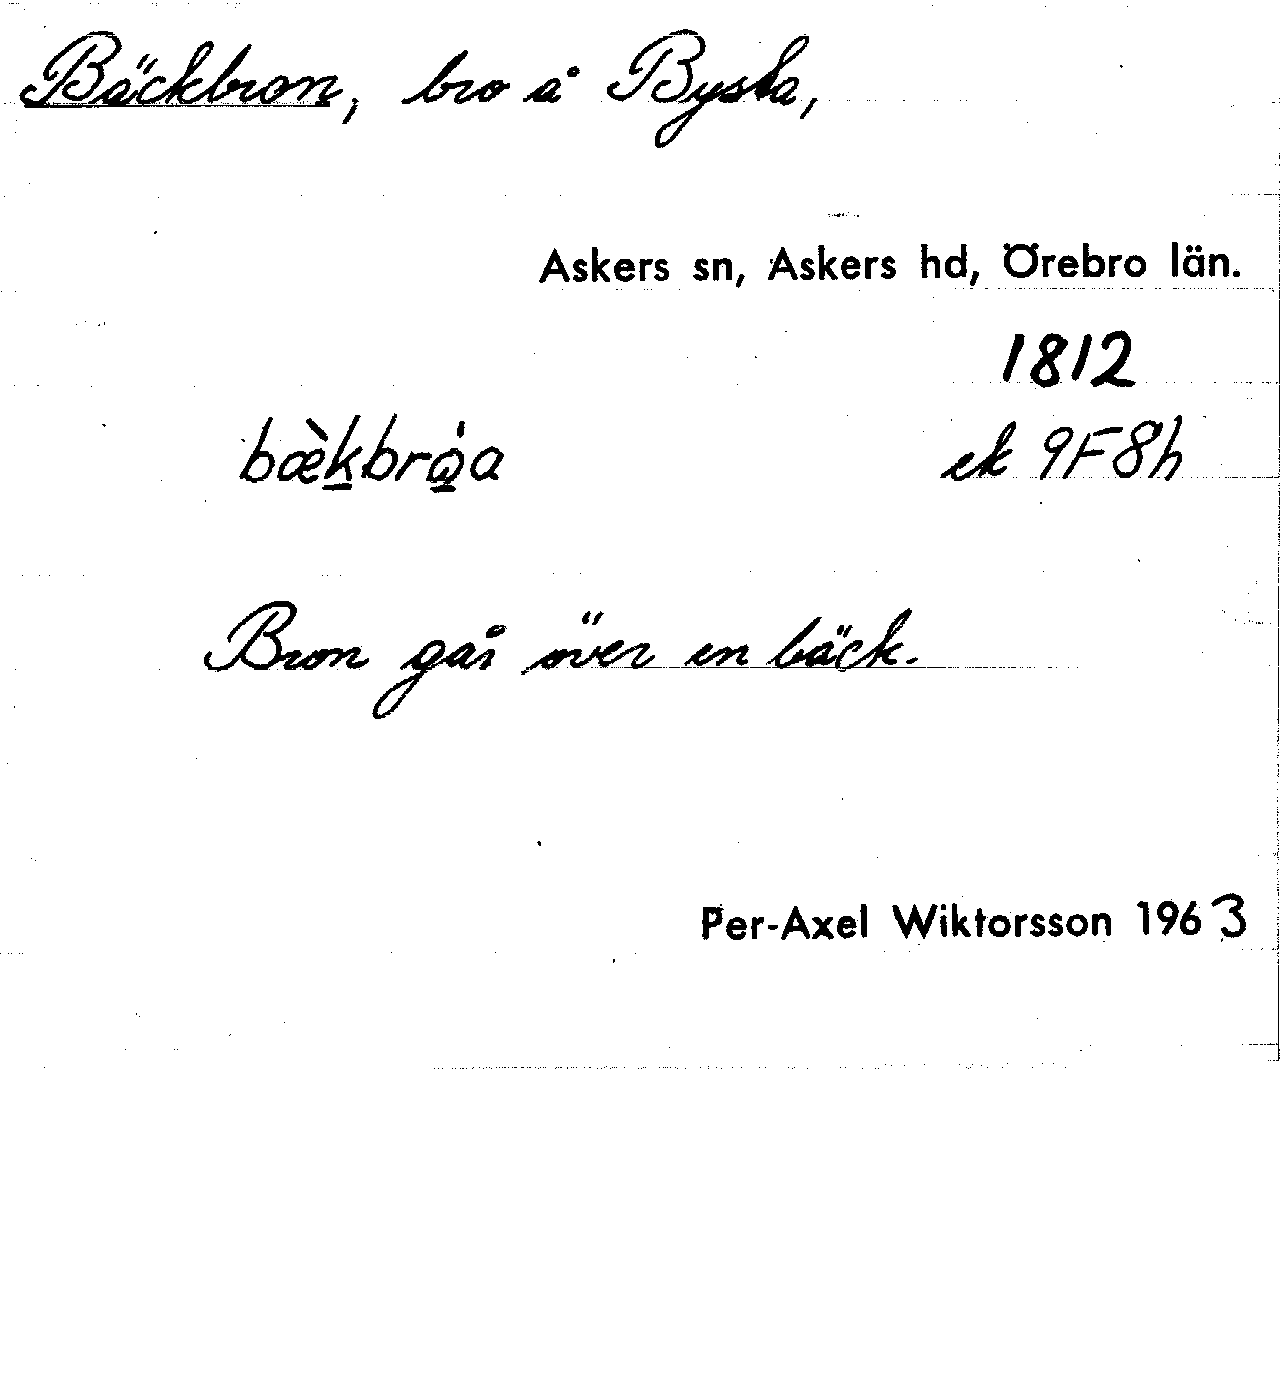 Bäckbron, bro å Bysta,
Askers sn, Askers hd, Örebro län.
1812
bæ̀k̲brώ̲a
ek 9F8h
Bron går över en bäck.
Per-Axel Wiktorsson 1963